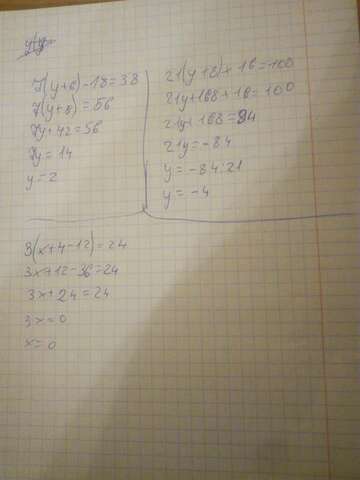 7(y+6)-18=38
7(y+8)=56
7y+42=56
7y=14
y=2
21(y+8)+16=100
21y+168+16=100
21y+168=84
21y=-84
y=-84:21
y=-4
3(x+4-12)=24
3x+12-36=24
3x+24=24
3x=0
x=0